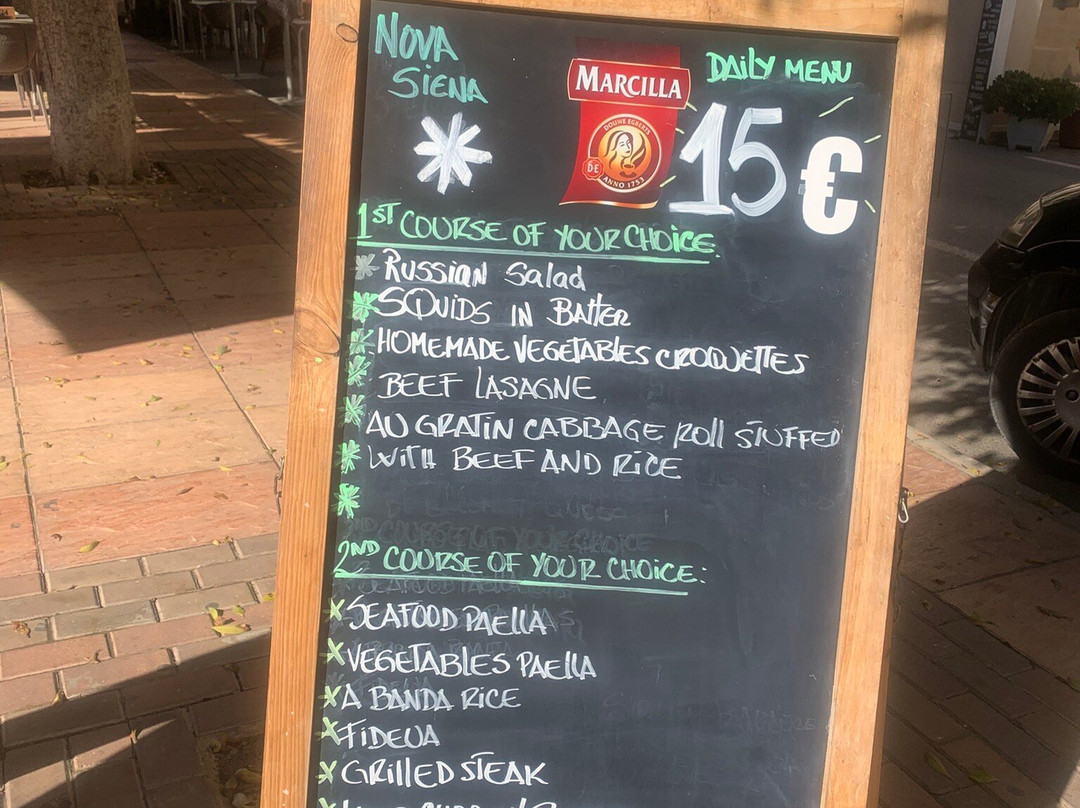 NOVA
SIENA
MARCILLA
DOUWE EGBERTS
DE
ANNO 1753
DAILY MENU
15 €
1ST COURSE OF YOUR CHOICE.
RUSSIAN Salad
SQUIDS IN BATTER
HOMEMADE VEGETABLES CROQUETTES
BEEF LASAGNE
AU GRATIN CABBAGE ROLL STUFFED
WITH BEEF AND RICE
2ND COURSE OF YOUR CHOICE:
SEAFOOD PAELLA
VEGETABLES PAELLA
A BANDA RICE
FIDEUA
GRILLED STEAK